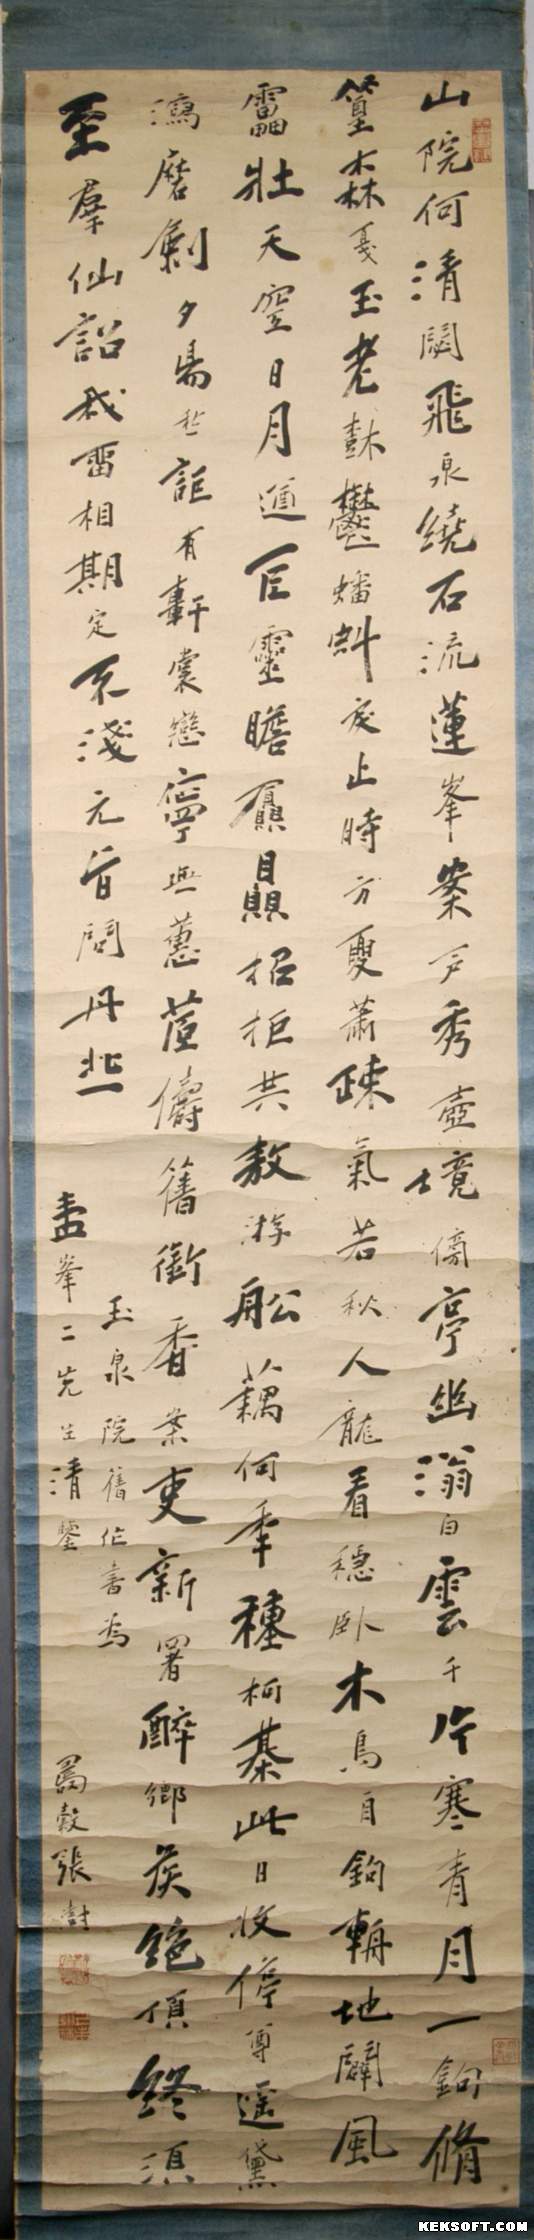 山院何清闢飛泉繞石流蓮峯案戶秀壺境傍亭幽滃白雲千片寒青月一鉤脩
篁森戛玉老鬱蟠虯夜止時方夏蕭疎氣若秋人龍看穩臥木鳥自鉤輈地闢風
雷壯天空日月遒巨靈瞻贔屭招拒共敖游船藕何年種柯棊此日收停尊遥黛
潟磨劍夕陽愁詎有軒裳戀寧與蕙茝儔舊銜香案吏新署醉鄉侯絕頂終須
至羣仙詔我畱相期定不淺元旨問丹丘
玉泉院舊作書為
峯二先生清鑒
張澍
KEKSOFT.COM